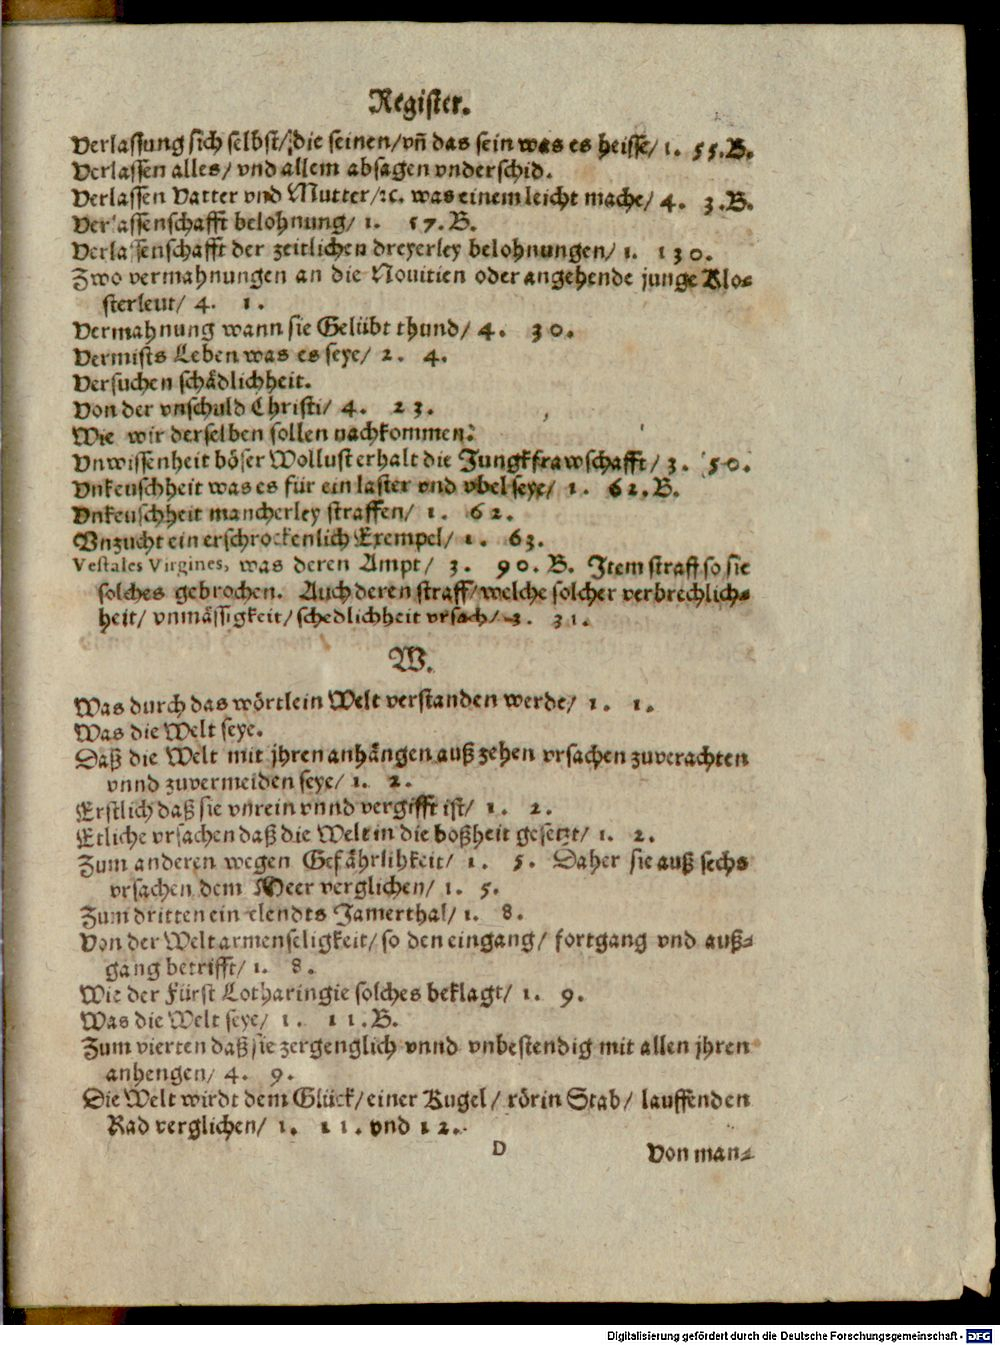 Register.
Verlassung sich selbst/ die seinen/ vñ das sein was es heisse/ 1. 55.B.
Verlassen alles/ vnd allem absagen vnderschid.
Verlassen Vatter vnd Mutter/ꝛc. was einem leicht mache/ 4. 3.B.
Verlassenschafft belohnung/ 1. 57.B.
Verlassenschafft der zeitlichen dreyerley belohnungen/ 1. 130.
Zwo vermahnungen an die Nouitien oder angehende junge Klo-
sterleut/ 4. 1.
Vermahnung wann sie Gelübt thund/ 4. 30.
Vermists Leben was es seye/ 2. 4.
Versuchen schädlichheit.
Von der vnschuld Christi/ 4. 23.
Wie wir derselben sollen nachkommen.
Vnwissenheit böser Wollust erhalt die Jungkfrawschafft/ 3. 50.
Vnkeuschheit was es für ein laster vnd vbel seye/ 1. 62.B.
Vnkeuschheit mancherley straffen/ 1. 62.
Vnzucht ein erschrockenlich Exempel/ 1. 63.
Vestales Virgines, was deren Ampt/ 3. 90.B. Item straff so sie
solches gebrochen. Auch deren straff/ welche solcher verbrechlich-
heit/ vnmässigkeit/ schedlichheit vrsach/ 3. 31.
W.
Was durch das wörtlein Welt verstanden werde/ 1. 1.
Was die Welt seye.
Daß die Welt mit jhren anhängen auß zehen vrsachen zuverachten
vnnd zuvermeiden seye/ 1. 2.
Erstlich daß sie vnrein vnnd vergifft ist/ 1. 2.
Etliche vrsachen daß die Welt in die boßheit gesetzt/ 1. 2.
Zum anderen wegen Gefährlihkeit/ 1. 5. Daher sie auß sechs
vrsachen dem Meer verglichen/ 1. 5.
Zum dritten ein elendts Jamerthal/ 1. 8.
Von der Welt armenseligkeit/ so den eingang/ fortgang vnd auß-
gang betrifft/ 1. 8.
Wie der Fürst Lotharingie solches beklagt/ 1. 9.
Was die Welt seye/ 1. 11.B.
Zum vierten daß sie zergenglich vnnd vnbestendig mit allen jhren
anhengen/ 4. 9.
Die Welt wirdt dem Glück/ einer Kugel/ rörin Stab/ lauffenden
Rad verglichen/ 1. 11. vnd 12.
D Von man-
Digitalisierung gefördert durch die Deutsche Forschungsgemeinschaft - DFG